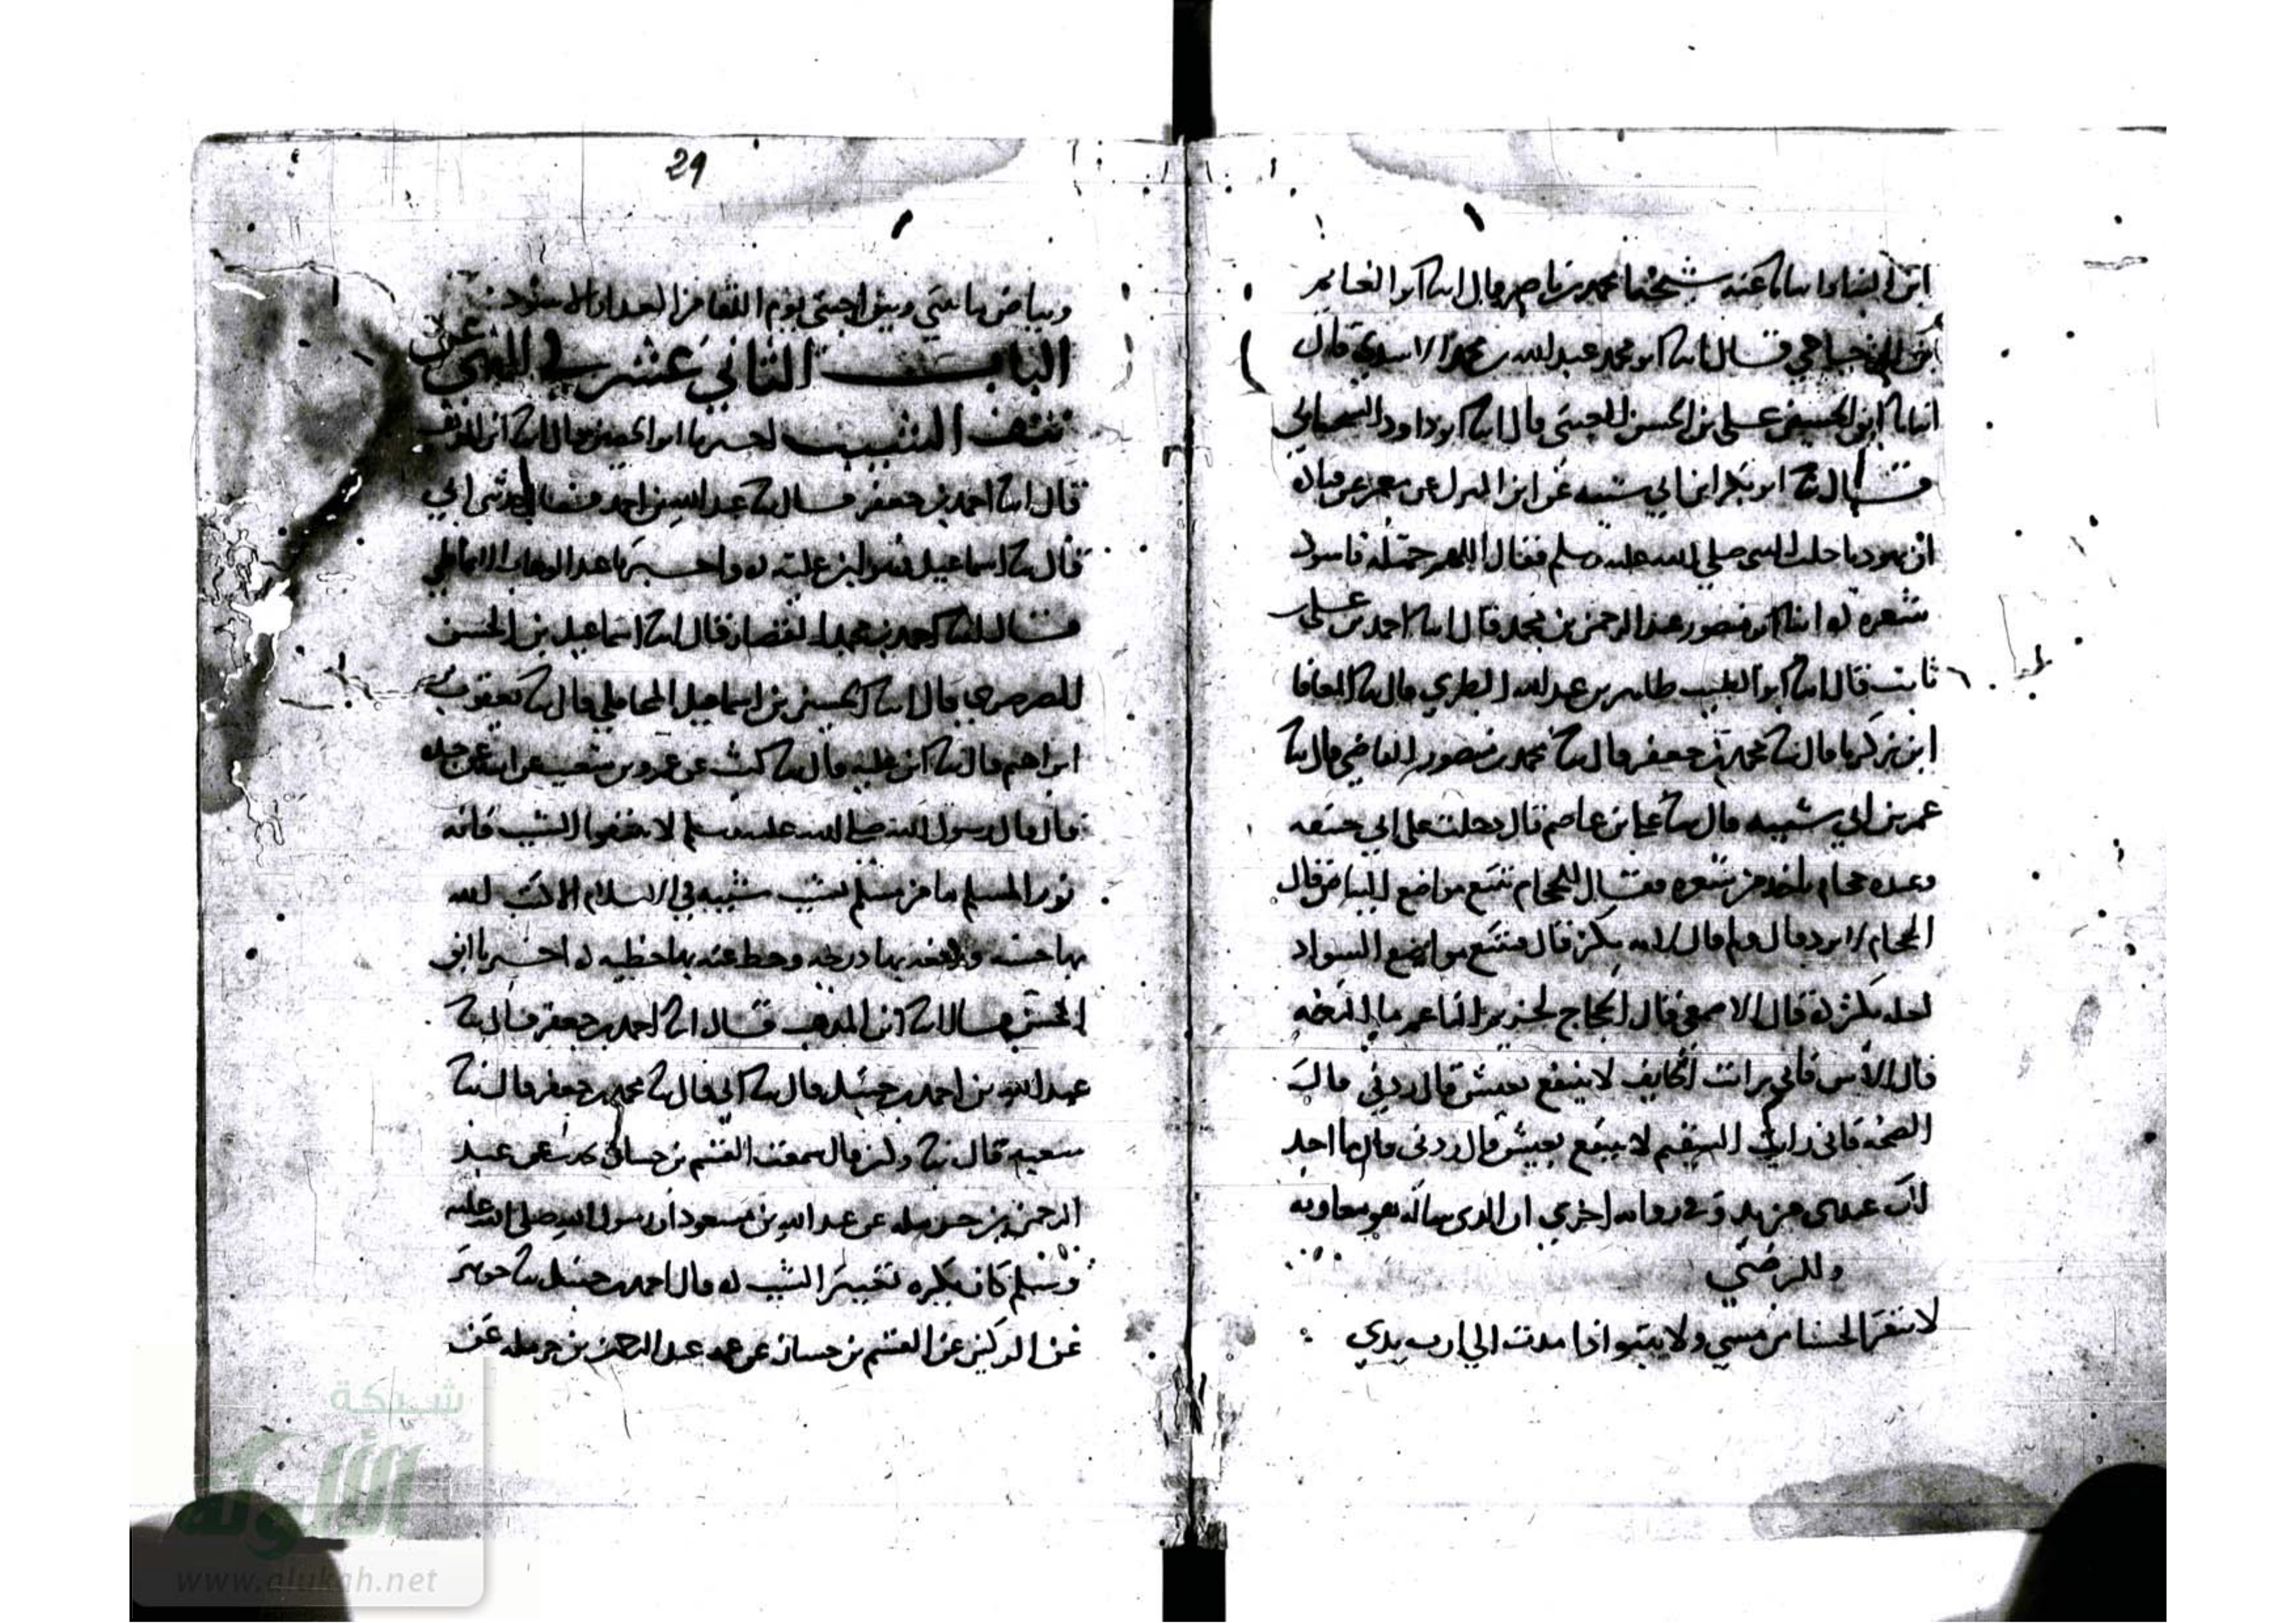 ابن البنا وانبانا عنه شيخنا محمد بن ناصر قال انبا ابو الغنايم
قال انبا ابو محمد عبد الله بن محمد الاسدي قال
انبانا ابو الحسين علي بن الحسن قال انبا ابو داود
قال ثنا ابو بكر ابن ابي شيبه عن ابن المبرك عن معمر عن قتاده
ان يهوديا حلب للنبي صلي الله عليه وسلم فقال اللهم جمله فاسود
شعره ۵ انبا ابو منصور عبد الرحمن بن محمد قال انبا احمد بن علي
ثابت قال انبا ابو الطيب طاهر بن عبد الله الطبري قال ثنا المعافا
ابن زكريا قال ثنا محمد بن جعفر قال ثنا محمد بن منصور القاضي قال ثنا
عمر بن ابي شيبه قال ثنا علي بن عاصم قال دخلت علي ابي حنيفه
وعنده حجام ياخذ من شعره فقال للحجام تتبع مواضع البياض قال
الحجام لا ترد قال ولم قال لانه يكثر قال فتتبع مواضع السواد
لعله يكثر ۵ قال الاصمعي قال الحجاج لخريم الناعم ما النعمه
قال الامن فاني رايت الخايف لا ينتفع بعيش قال زدني قال
الصحه فاني رايت السقيم لا ينتفع بعيش قال زدني قال ما اجد
لك عندي مزيد وفي روايه اخري ان الذي ساله هو معاويه
وللرضي
لا تنفر الحسنا من مسي ولا يبتو اذا مدت الي ارب يدي
29
وبياض ما بيني وبين احبتي يوم اللقا من العدار الاسود
الباب الثاني عشر في النهي عن
نتف الشيب اخبرنا ابن الحصين قال انبا ابن المذهب
قال انبا احمد بن جعفر قال ثنا عبد الله بن احمد قال حدثني ابي
قال ثنا اسماعيل هو ابن علية ۵ واخبرنا عبد الوهاب الانماطي
قال انبا احمد بن محمد القصار قال انبا اسماعيل بن الحسن
الصرصري قال انبا الحسين بن اسماعيل المحاملي قال ثنا يعقوب بن
ابراهيم قال ثنا ابن علية قال ثنا ليث عن عمرو بن شعيب عن ابيه عن جده
قال قال رسول الله صلي الله عليه وسلم لا تنتفوا الشيب فانه
نور المسلم ما من مسلم يشيب شيبه في الاسلام الا كتب الله
بها حسنه ورفعه بها درجه وحط عنه بها خطيه ۵ اخبرنا ابن
الحصين قال انبا ابن المذهب قال انبا احمد بن جعفر قال ثنا
عبد الله بن احمد بن حنبل قال ثنا ابي قال ثنا محمد بن جعفر قال ثنا
شعبه قال ثنا ركين قال سمعت القسم بن حسان يحدث عن عبد
الرحمن بن حرمله عن عبد الله بن مسعود ان رسول الله صلي الله عليه
وسلم كان يكره تغيير الشيب ۵ قال احمد بن حنبل ثنا جرير
عن الركين عن القسم بن حسان عن عمه عبد الرحمن بن حرمله عن
شبكة
الألوكة
www.alukah.net